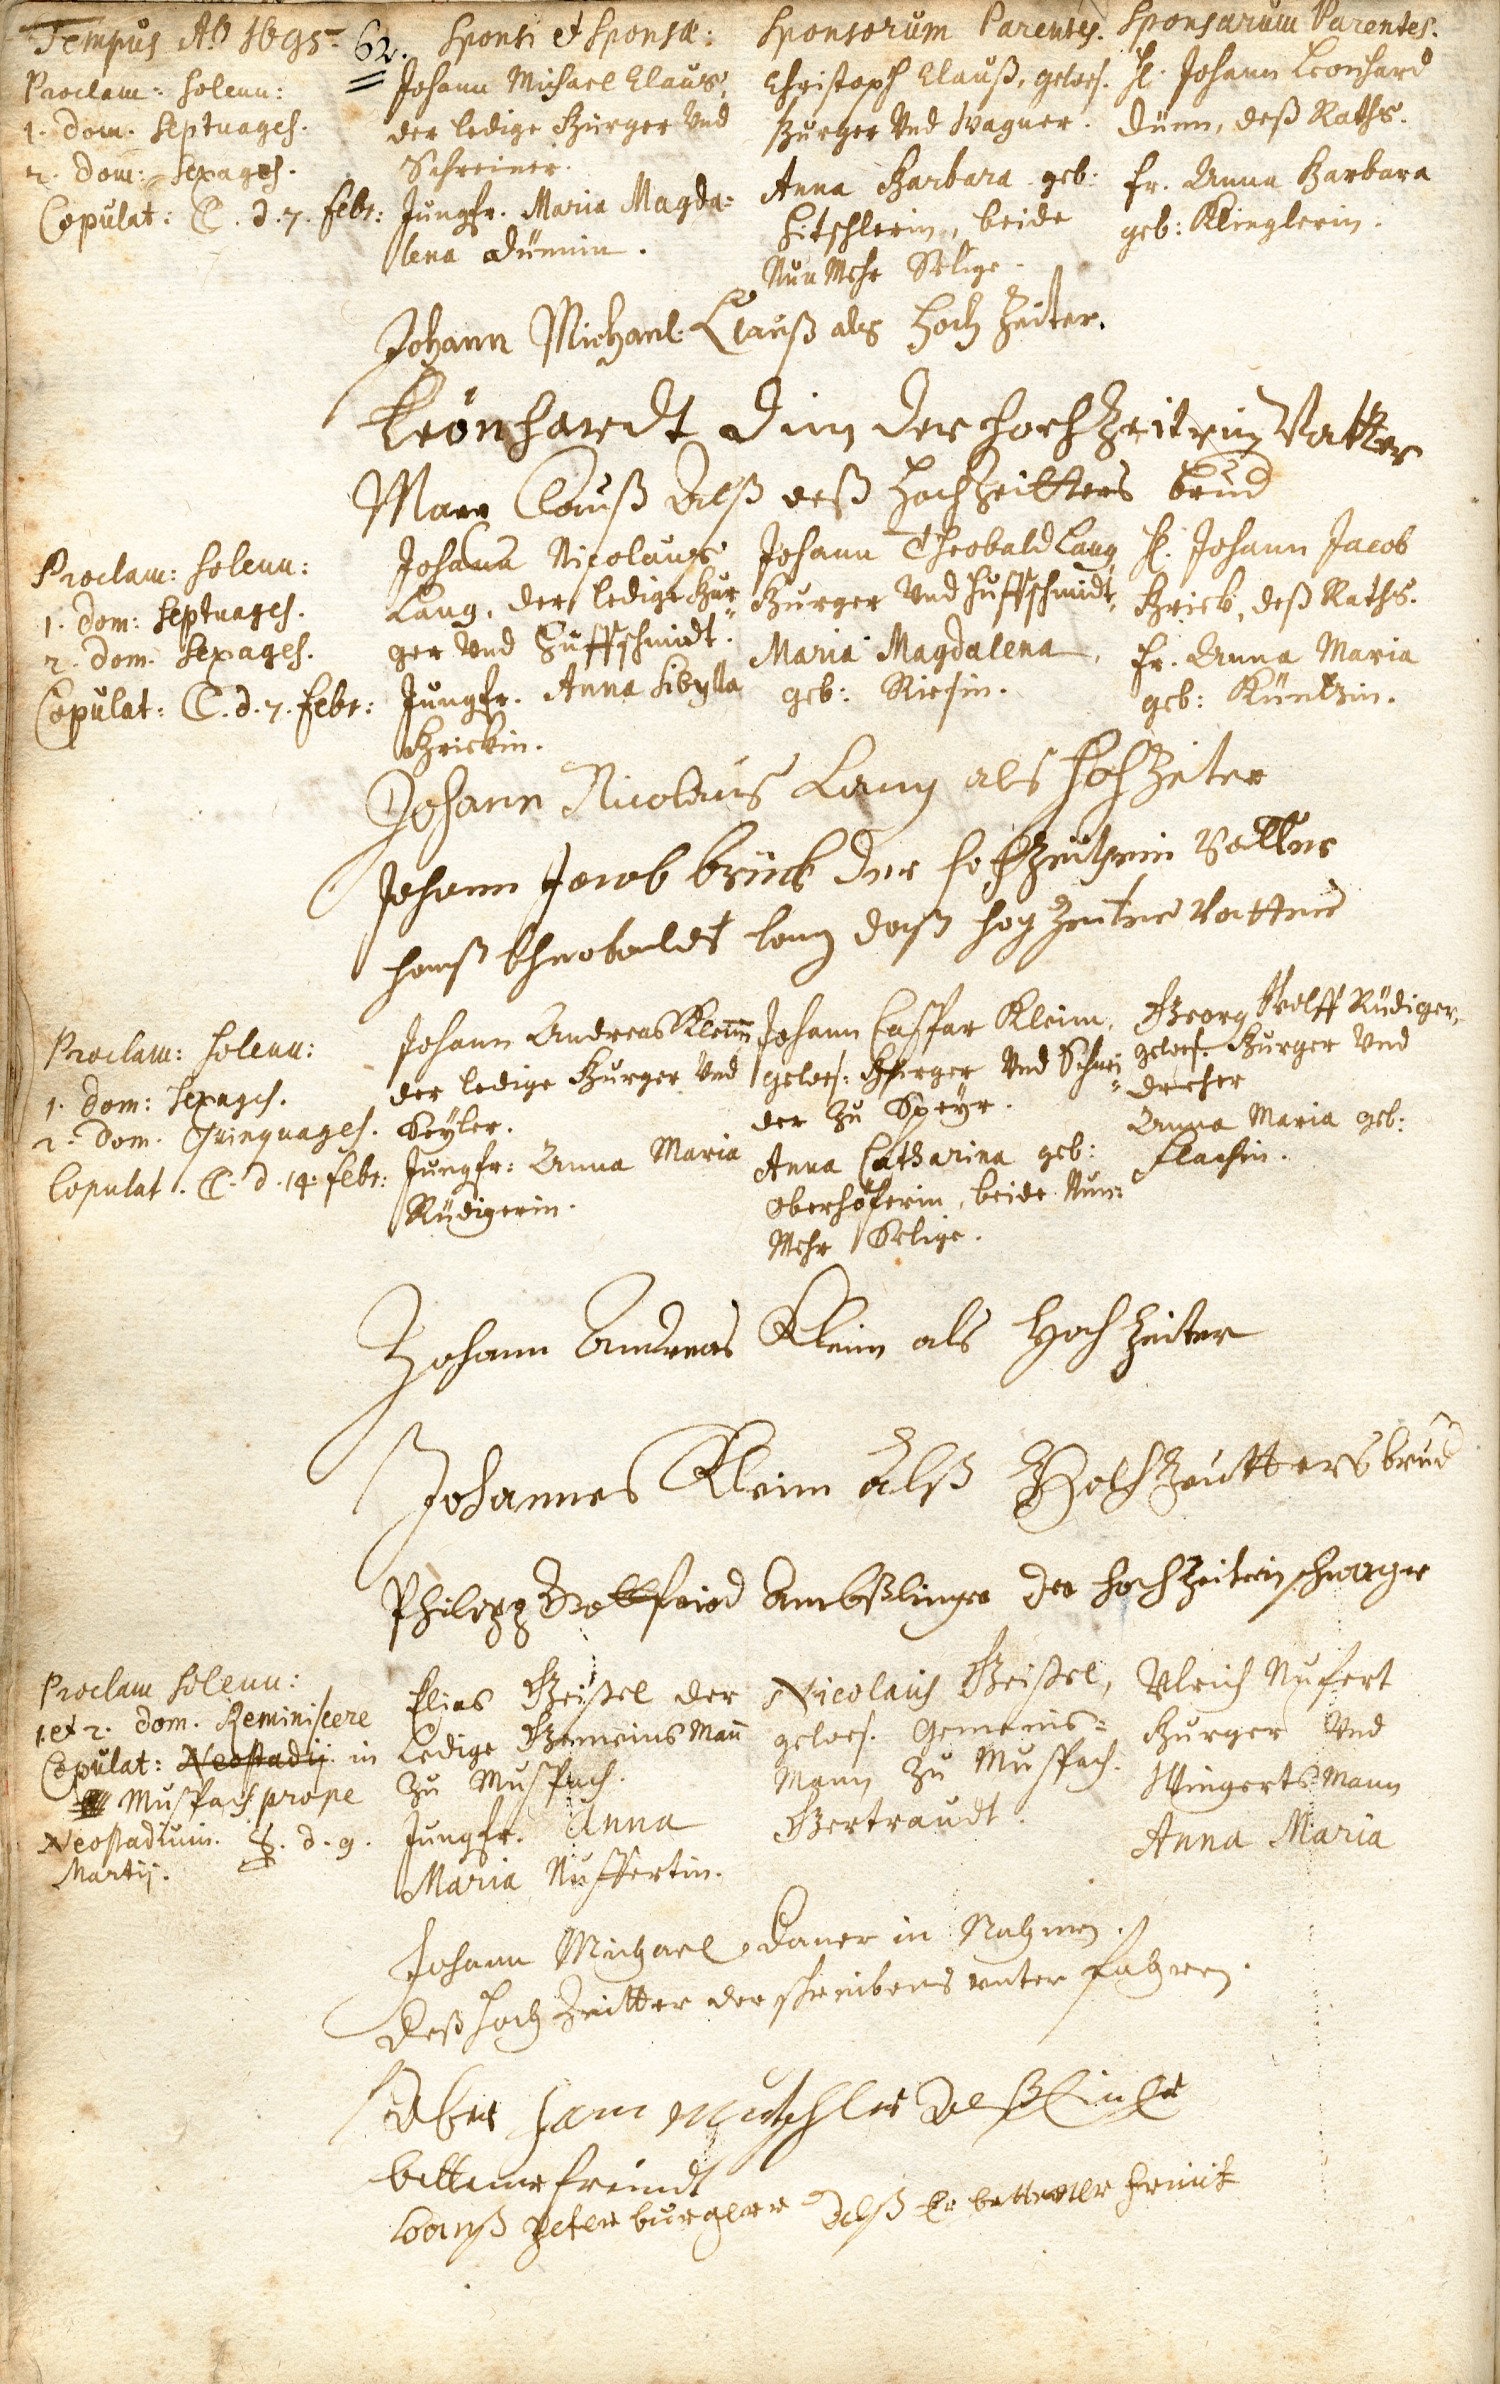 Tempus Aō 1695.
62.
Sponsi et Sponsæ:
Sponsorum Parentes.
Sponsarum Parentes.
Proclam: solenn:
1. Dom. Septuages.
2. Dom: Sexages.
Copulat: C. d. 7. Febr:
Johann Michael Clauß,
der ledige Burger Und
Schreiner.
Jungfr. Maria Magda=
lena Dünnin.
Christoph Clauß, gewes.
Burger Und Wagner.
Anna Barbara geb:
Hitschlerin, beide
Nun Mehr Selige.
H. Johann Leonhard
Dünn, deß Raths.
Fr. Anna Barbara
geb: Klinglerin.
Johann Michael Clauß als Hoch Zeiter.
Leonhardt Din der hoch Zeiterin Vatter
Marx Clauß Alß deß Hoch Zeitters brud
Proclam: solenn:
1. Dom: Septuages.
2. Dom. Sexages.
Copulat: C. d. 7. Febr:
Johann Nicolaus
Lang, der ledige Bur=
ger Und Huffschmidt.
Jungfr. Anna Sibylla
Brickin.
Johann Theobald Lang
Burger Und Huffschmidt,
Maria Magdalena,
geb: Riesin.
H. Johann Jacob
Brick, deß Raths.
Fr. Anna Maria
geb: Küntzin.
Johann Nicolaus Lang als Hoch Zeiter
Johann Jacob brück der hochzeiterin Vatter
hanß theobaldt lang deß hog Zeiters Vatter
Proclam: solenn:
1. Dom: Sexages.
2. Dom. Quinquages.
Copulat. C. d. 14. Febr:
Johann Andreas Kleim
der ledige Burger Und
Seyler.
Jungfr: Anna Maria
Rüdigerin.
Johann Caspar Kleim,
gewes: Burger Und Schnei=
der Zu Speyr.
Anna Catharina geb:
Oberhöferin, beide Nun=
Mehr Selige.
Georg Wolff Rüdiger,
gewes. Burger Und
Dreher
Anna Maria geb:
Flachin.
Johann Andreas Kleim als Hoch Zeiter
Johannes Kleim alß Hoch Zeutters brud
Philipp Gottfried der hoch Zeiterin schwager
Proclam solenn:
1. et 2. Dom. Reminiscere
Copulat: Neostadij in
Muspach prope
Neostadium. d. 9.
Martij.
Elias Geissel der
Ledige Gemeins Man
Zu Muspach.
Jungfr. Anna
Maria Nuffertin.
Nicolaus Geissel,
gewes. Gemeins=
Mann Zu Muspach.
Gertraudt.
Ulrich Nufert
Burger Und
Wingerts Mann
Anna Maria
Johann Michael Daner in Nahmen
deß Hoch Zeitter der schreibens unter fahren.
bettener freindt
Hanß Peter burgerr Alß Er bettener freint